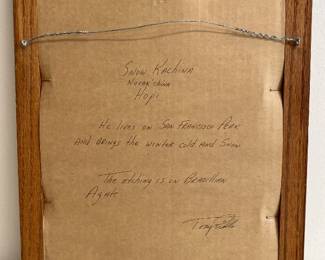 Snow Kachina
Hopi
He lives on San Francisco Peak
and brings the winter cold and snow
The etching is on Brazilian
Agate